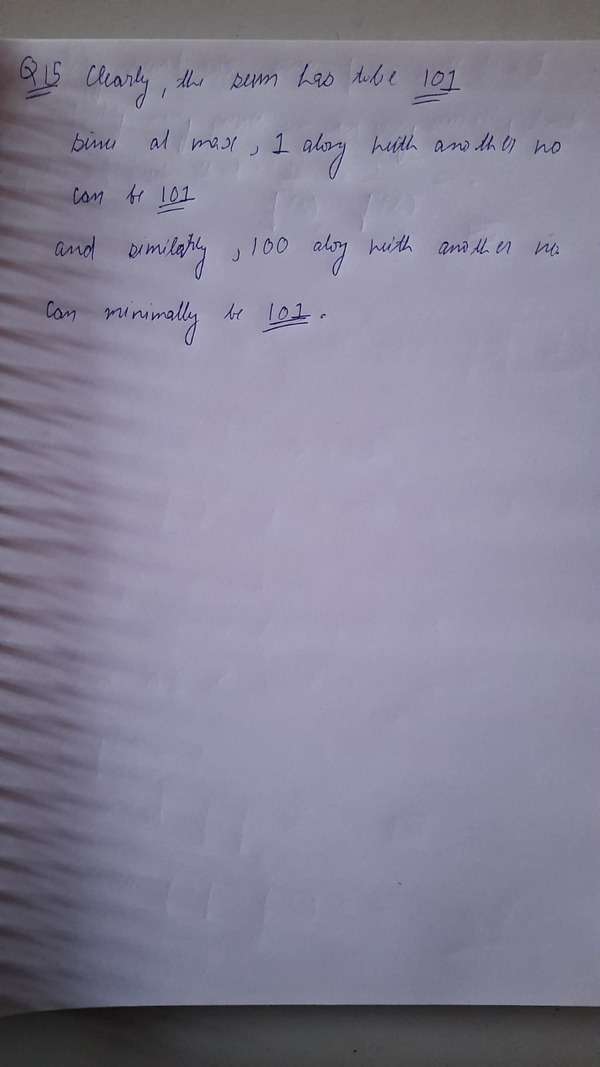 Q15 Clearly, the sum has to be 101
since at max, 1 along with another no
can be 101
and similarly, 100 along with another no.
can minimally be 101.